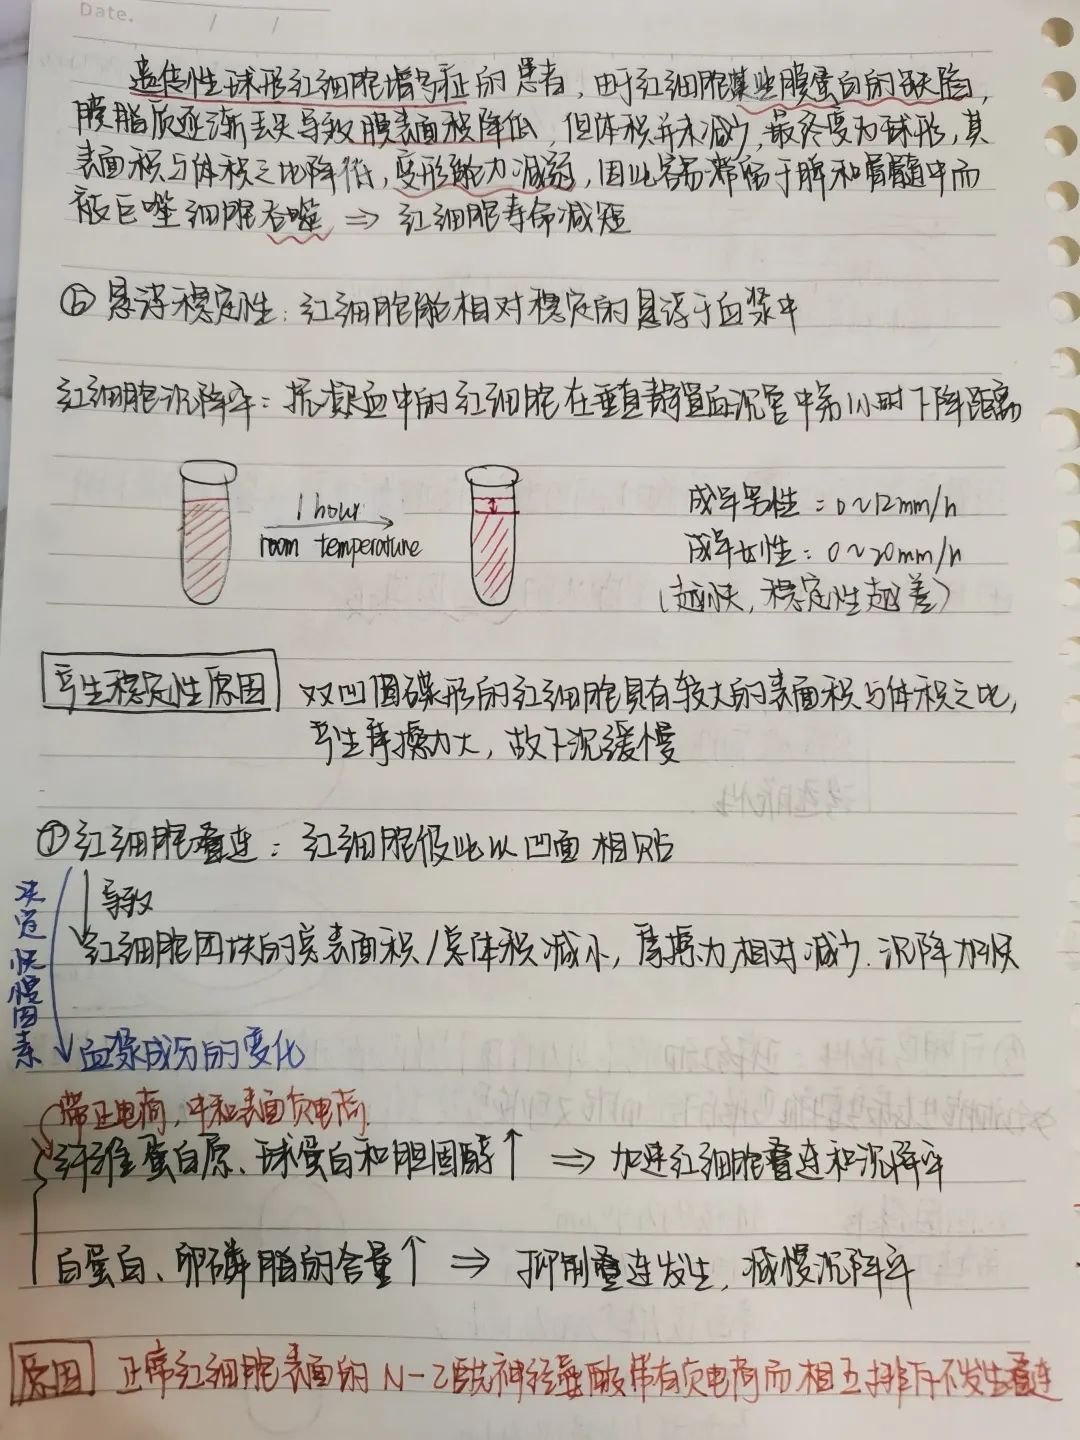 Date. / /
遗传性球形红细胞增多症的患者，由于红细胞某些膜蛋白的缺陷，
膜脂质逐渐丢失导致膜表面积降低，但体积并未减少，最终变为球形，其
表面积与体积之比降低，变形能力减弱，因此容易滞留于脾和骨髓中而
被巨噬细胞吞噬 ⇒ 红细胞寿命减短
⑥ 悬浮稳定性：红细胞能相对稳定的悬浮于血浆中
红细胞沉降率：抗凝血中的红细胞在垂直静置血沉管中第1小时下降距离
1 hour
room temperature
成年男性：0~12mm/h
成年女性：0~20mm/h
（越快，稳定性越差）
产生稳定性原因 双凹圆碟形的红细胞具有较大的表面积与体积之比，
产生摩擦力大，故下沉缓慢
⑦ 红细胞叠连：红细胞彼此以凹面相贴
导致
红细胞团块的总表面积/总体积减小，摩擦力相对减少．沉降加快
决定快慢因素
血浆成分的变化
带正电荷，中和表面负电荷．
纤维蛋白原、球蛋白和胆固醇↑ ⇒ 加速红细胞叠连和沉降率
白蛋白、卵磷脂的含量↑ ⇒ 抑制叠连发生，减慢沉降率
原因 正常红细胞表面的N-乙酰神经氨酸带有负电荷而相互排斥不发生叠连